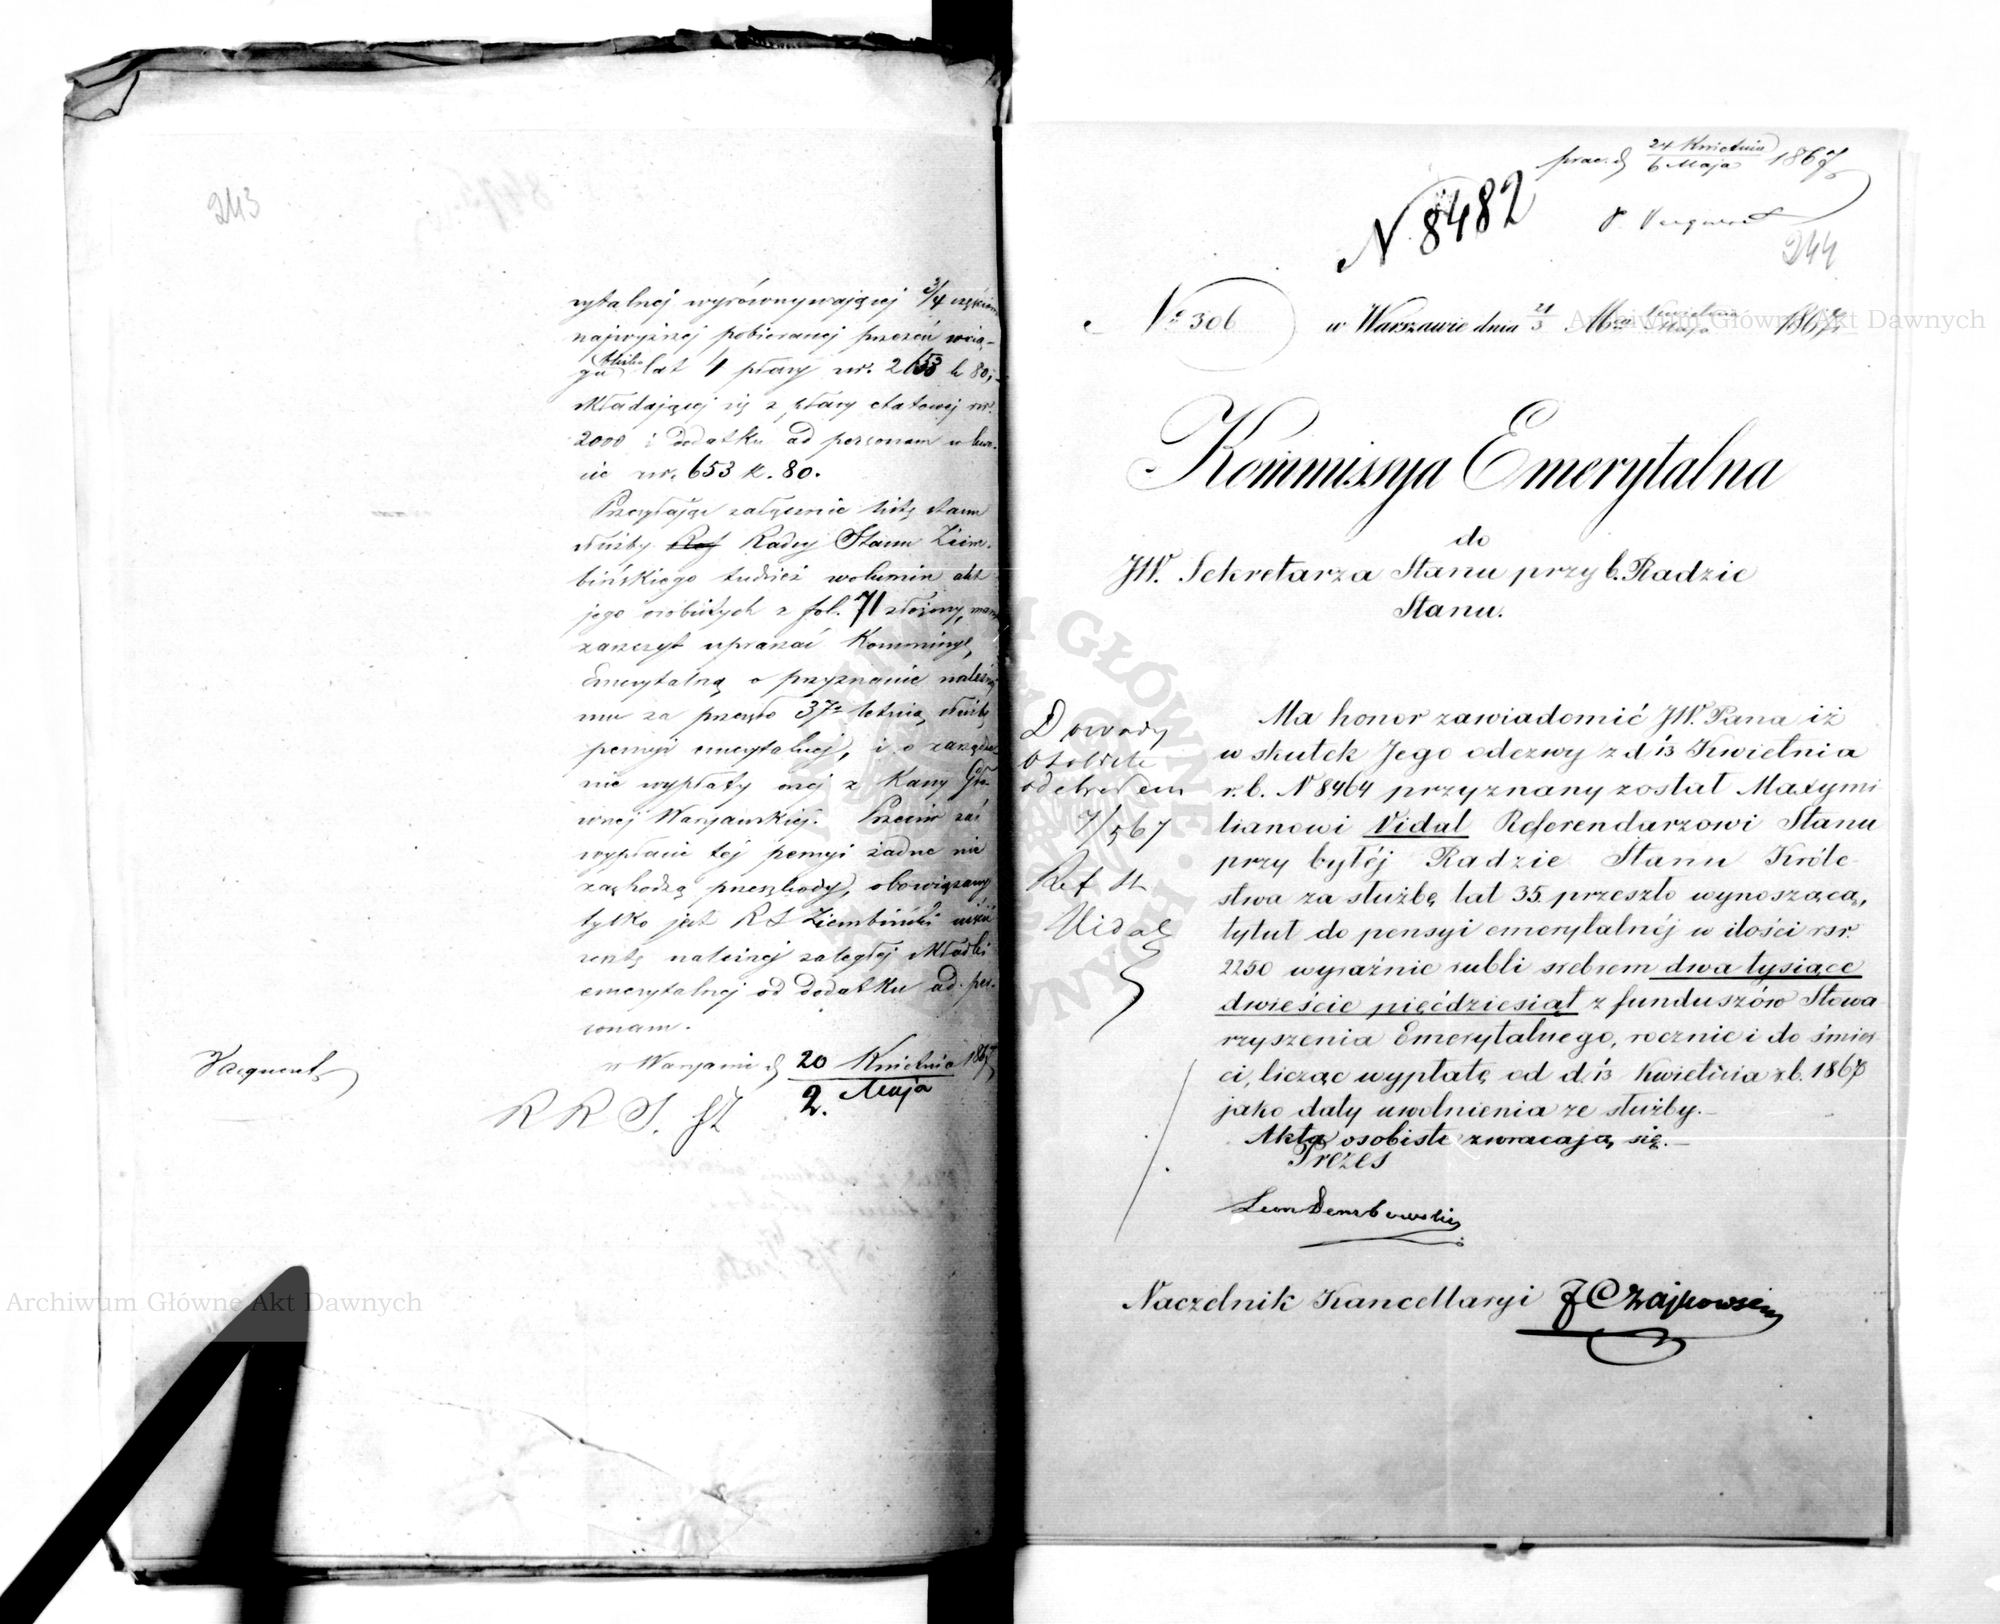 243
rytalnej wyrównywającej 3/4 częściom
najwyższej pobieranej przezeń w cią-
gu lat 4 płacy rsr. 2653 k 80,
składającej się z płacy etatowej rsr.
2000 i dodatku ad personam w kwo-
cie rsr. 653 k. 80.
Przesyłając załącznie listę stanu
służby Radcy Stanu Ziem-
bińskiego tudzież wolumin akt
jego osobistych z fol. 71 złożony, mam
zaszczyt upraszać Kommissyę
Emerytalną o przyznanie należnej
mu za przeszło 37o letnią służbę
pensyi emerytalnej, i o zarządze-
nie wypłaty onej z Kassy Głó-
wnej Warszawskiej. Przeciw zaś
wypłacie tej pensyi żadne nie
zachodzą przeszkody, obowiązany
tylko jest RS Ziembiński uiścić
resztę należnej zaległej składki
emerytalnej od dodatku ad per-
sonam.
w Warszawie d 20 Kwietnia 1867
2. Maja
Vacqueret
R R S.
praes. d 24 Kwietnia 1867
6 Maja
N 8482
P. Vacqueret
244
No 306
w Warszawie dnia 21/3 Mca Kwietnia/Maja 1867 r.
Archiwum Główne Akt Dawnych
Kommissya Emerytalna
do
JW. Sekretarza Stanu przy b. Radzie
Stanu.
Ma honor zawiadomić JW. Pana iż
w skutek Jego odezwy z d 13 Kwietnia
r. b. N 8464 przyznany został Maxymi
lianowi Vidal Referendarzowi Stanu
przy byłéj Radzie Stanu Króle-
stwa za służbę lat 35 przeszło wynoszącą,
tytuł do pensyi emerytalnéj w ilości rsr.
2250 wyraźnie rubli srebrem dwa tysiące
dwieście pięćdziesiąt z funduszów Stowa
rzyszenia Emerytalnego, rocznie i do śmier-
ci, licząc wypłatę od d. 13 Kwietnia r.b. 1867
jako daty uwolnienia ze służby.—
Akta osobiste zwracają się.—
Prezes
Leon Dembowski
Naczelnik Kancellaryi J Czajkowski
Dowody
osobiste
odebrałem
7/5 67
Ref St
Vidal
Archiwum Główne Akt Dawnych